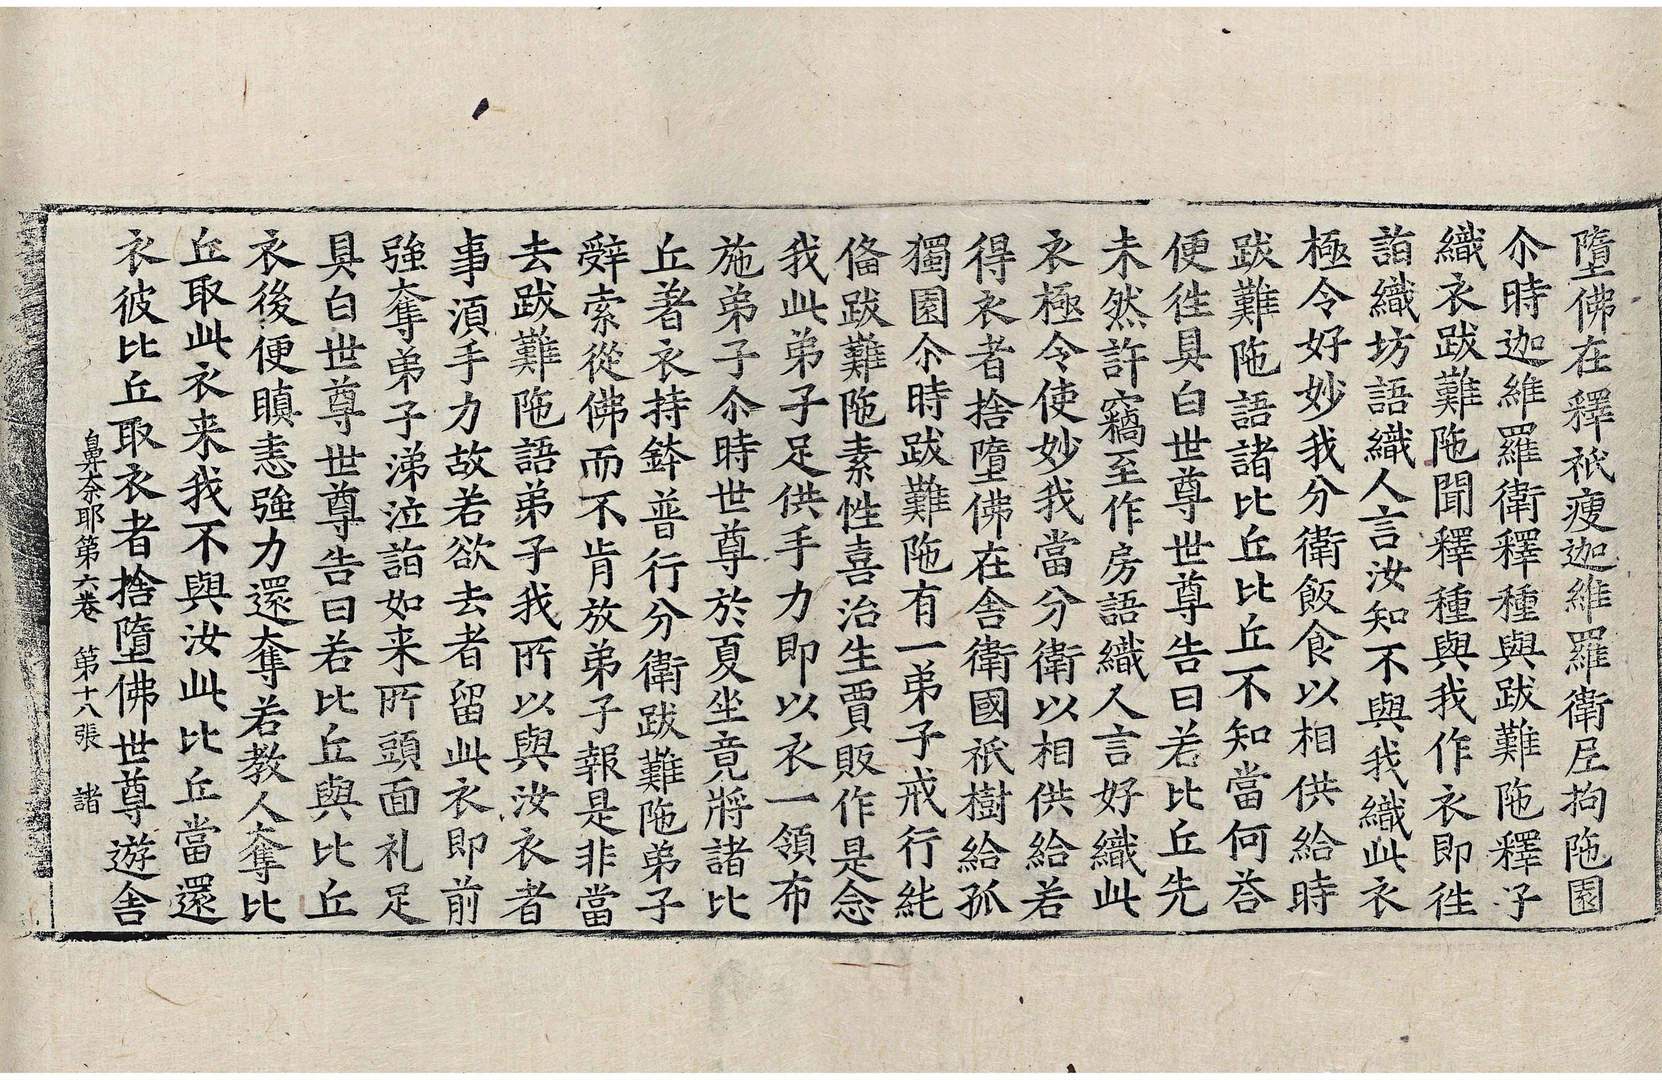 墮佛在釋祇瘦迦維羅衛尼拘陁園
尒時迦維羅衛釋種與跋難陁釋子
織衣跋難陁聞釋種與我作衣即徃
詣織坊語織人言汝知不與我織此衣
極令好妙我分衛飯食以相供給時
跋難陁語諸比丘比丘不知當何荅
便徃具白世尊世尊告曰若比丘先
未然許竊至作房語織人言好織此
衣極令使妙我當分衛以相供給若
得衣者捨墮佛在舍衛國祇樹給孤
獨園尒時跋難陁有一弟子戒行純
俻跋難陁素性喜治生賈販作是念
我此弟子足供手力即以衣一領布
施弟子尒時世尊於夏坐竟將諸比
丘著衣持鉢普行分衛跋難陁弟子
辤索從佛而不肯放弟子報是非當
去跋難陁語弟子我所以與汝衣者
事湏手力故若欲去者留此衣即前
強奪弟子涕泣詣如来所頭面礼足
具白世尊世尊告曰若比丘與比丘
衣後便瞋恚強力還奪若教人奪比
丘取此衣来我不與汝此比丘當還
衣彼比丘取衣者捨墮佛世尊遊舍
鼻奈耶第六卷 第十八張 諸